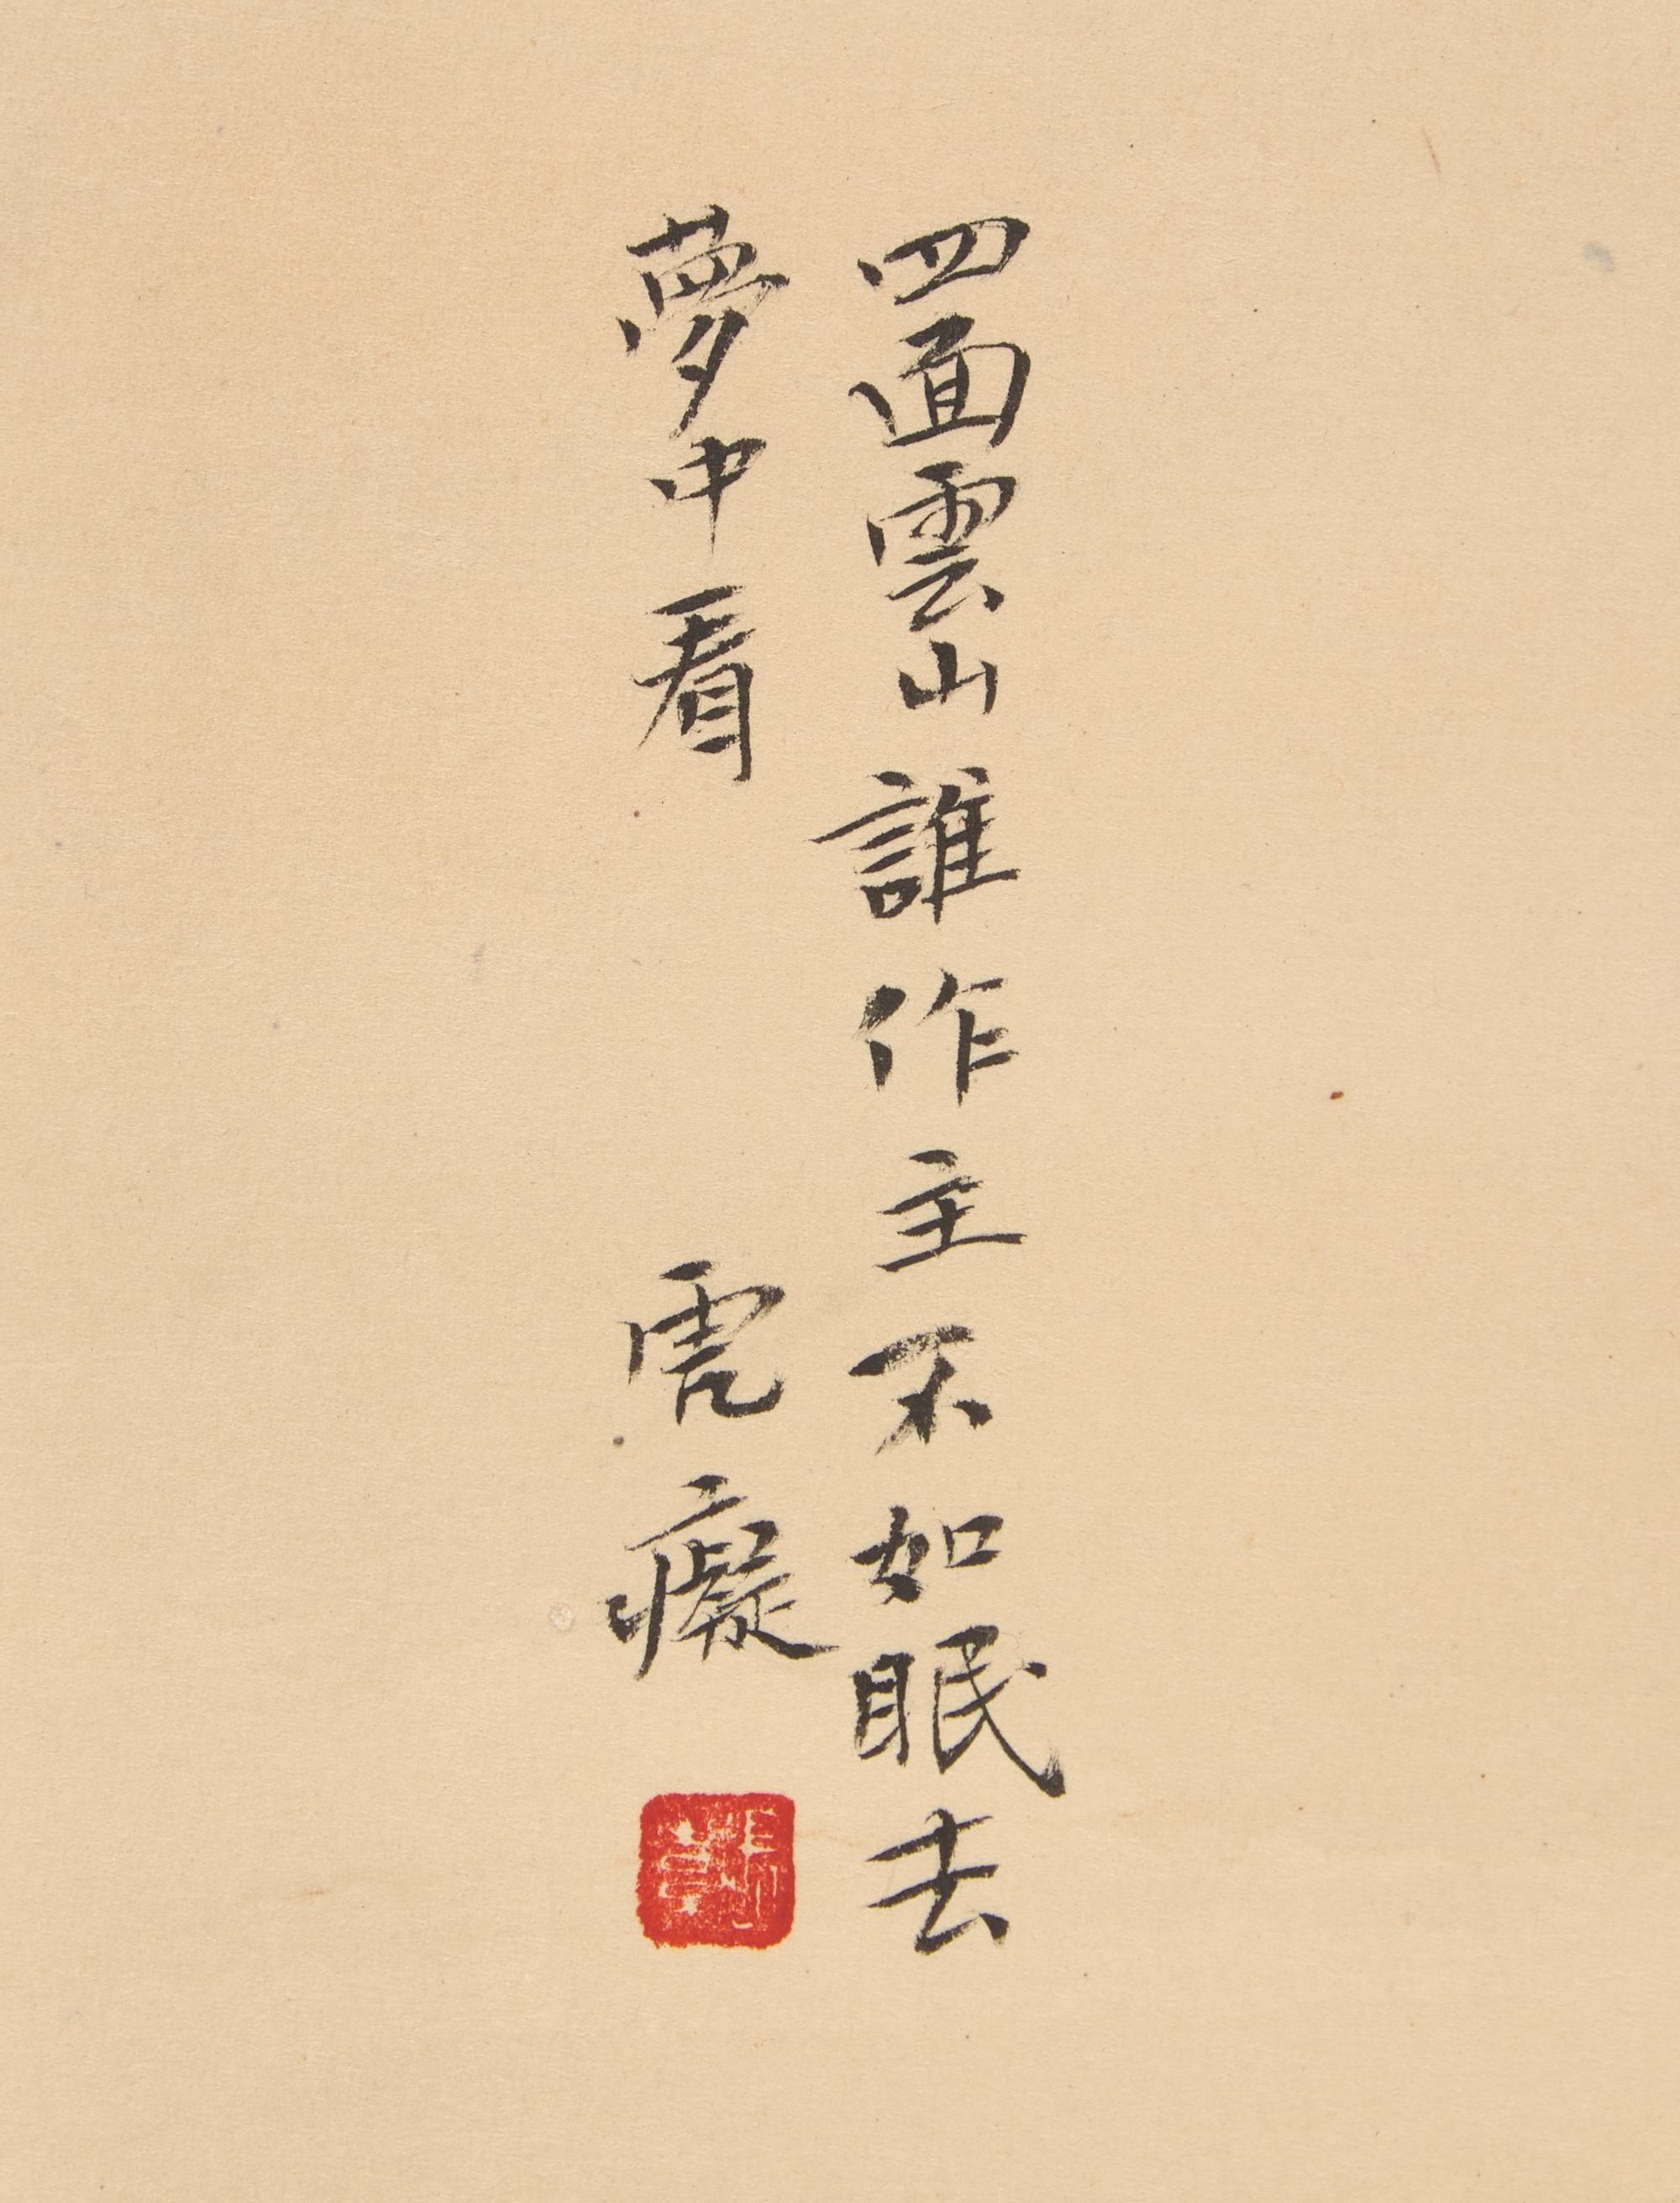 四面雲山誰作主不如眠去
夢中看　虎癡